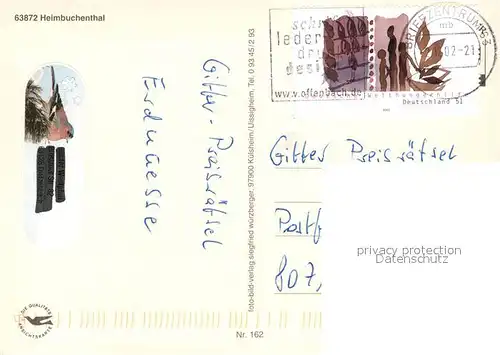 63872 Heimbuchenthal
sch
leder
dr
desi
www.offenbach.de
BRIEFZENTRUM 63
mb
02-21
Deutschland 51
Gitter-Preisrätsel
Erdnüesse
foto-bild-verlag siegfried würzberger, 97900 Külsheim/Uissigheim, Tel. 0 93 45/2 93
Gitter Preisrätsel
Postf
807,
privacy protection
Datenschutz
DIE QUALITÄTS
ANSICHTSKARTE
Nr. 162